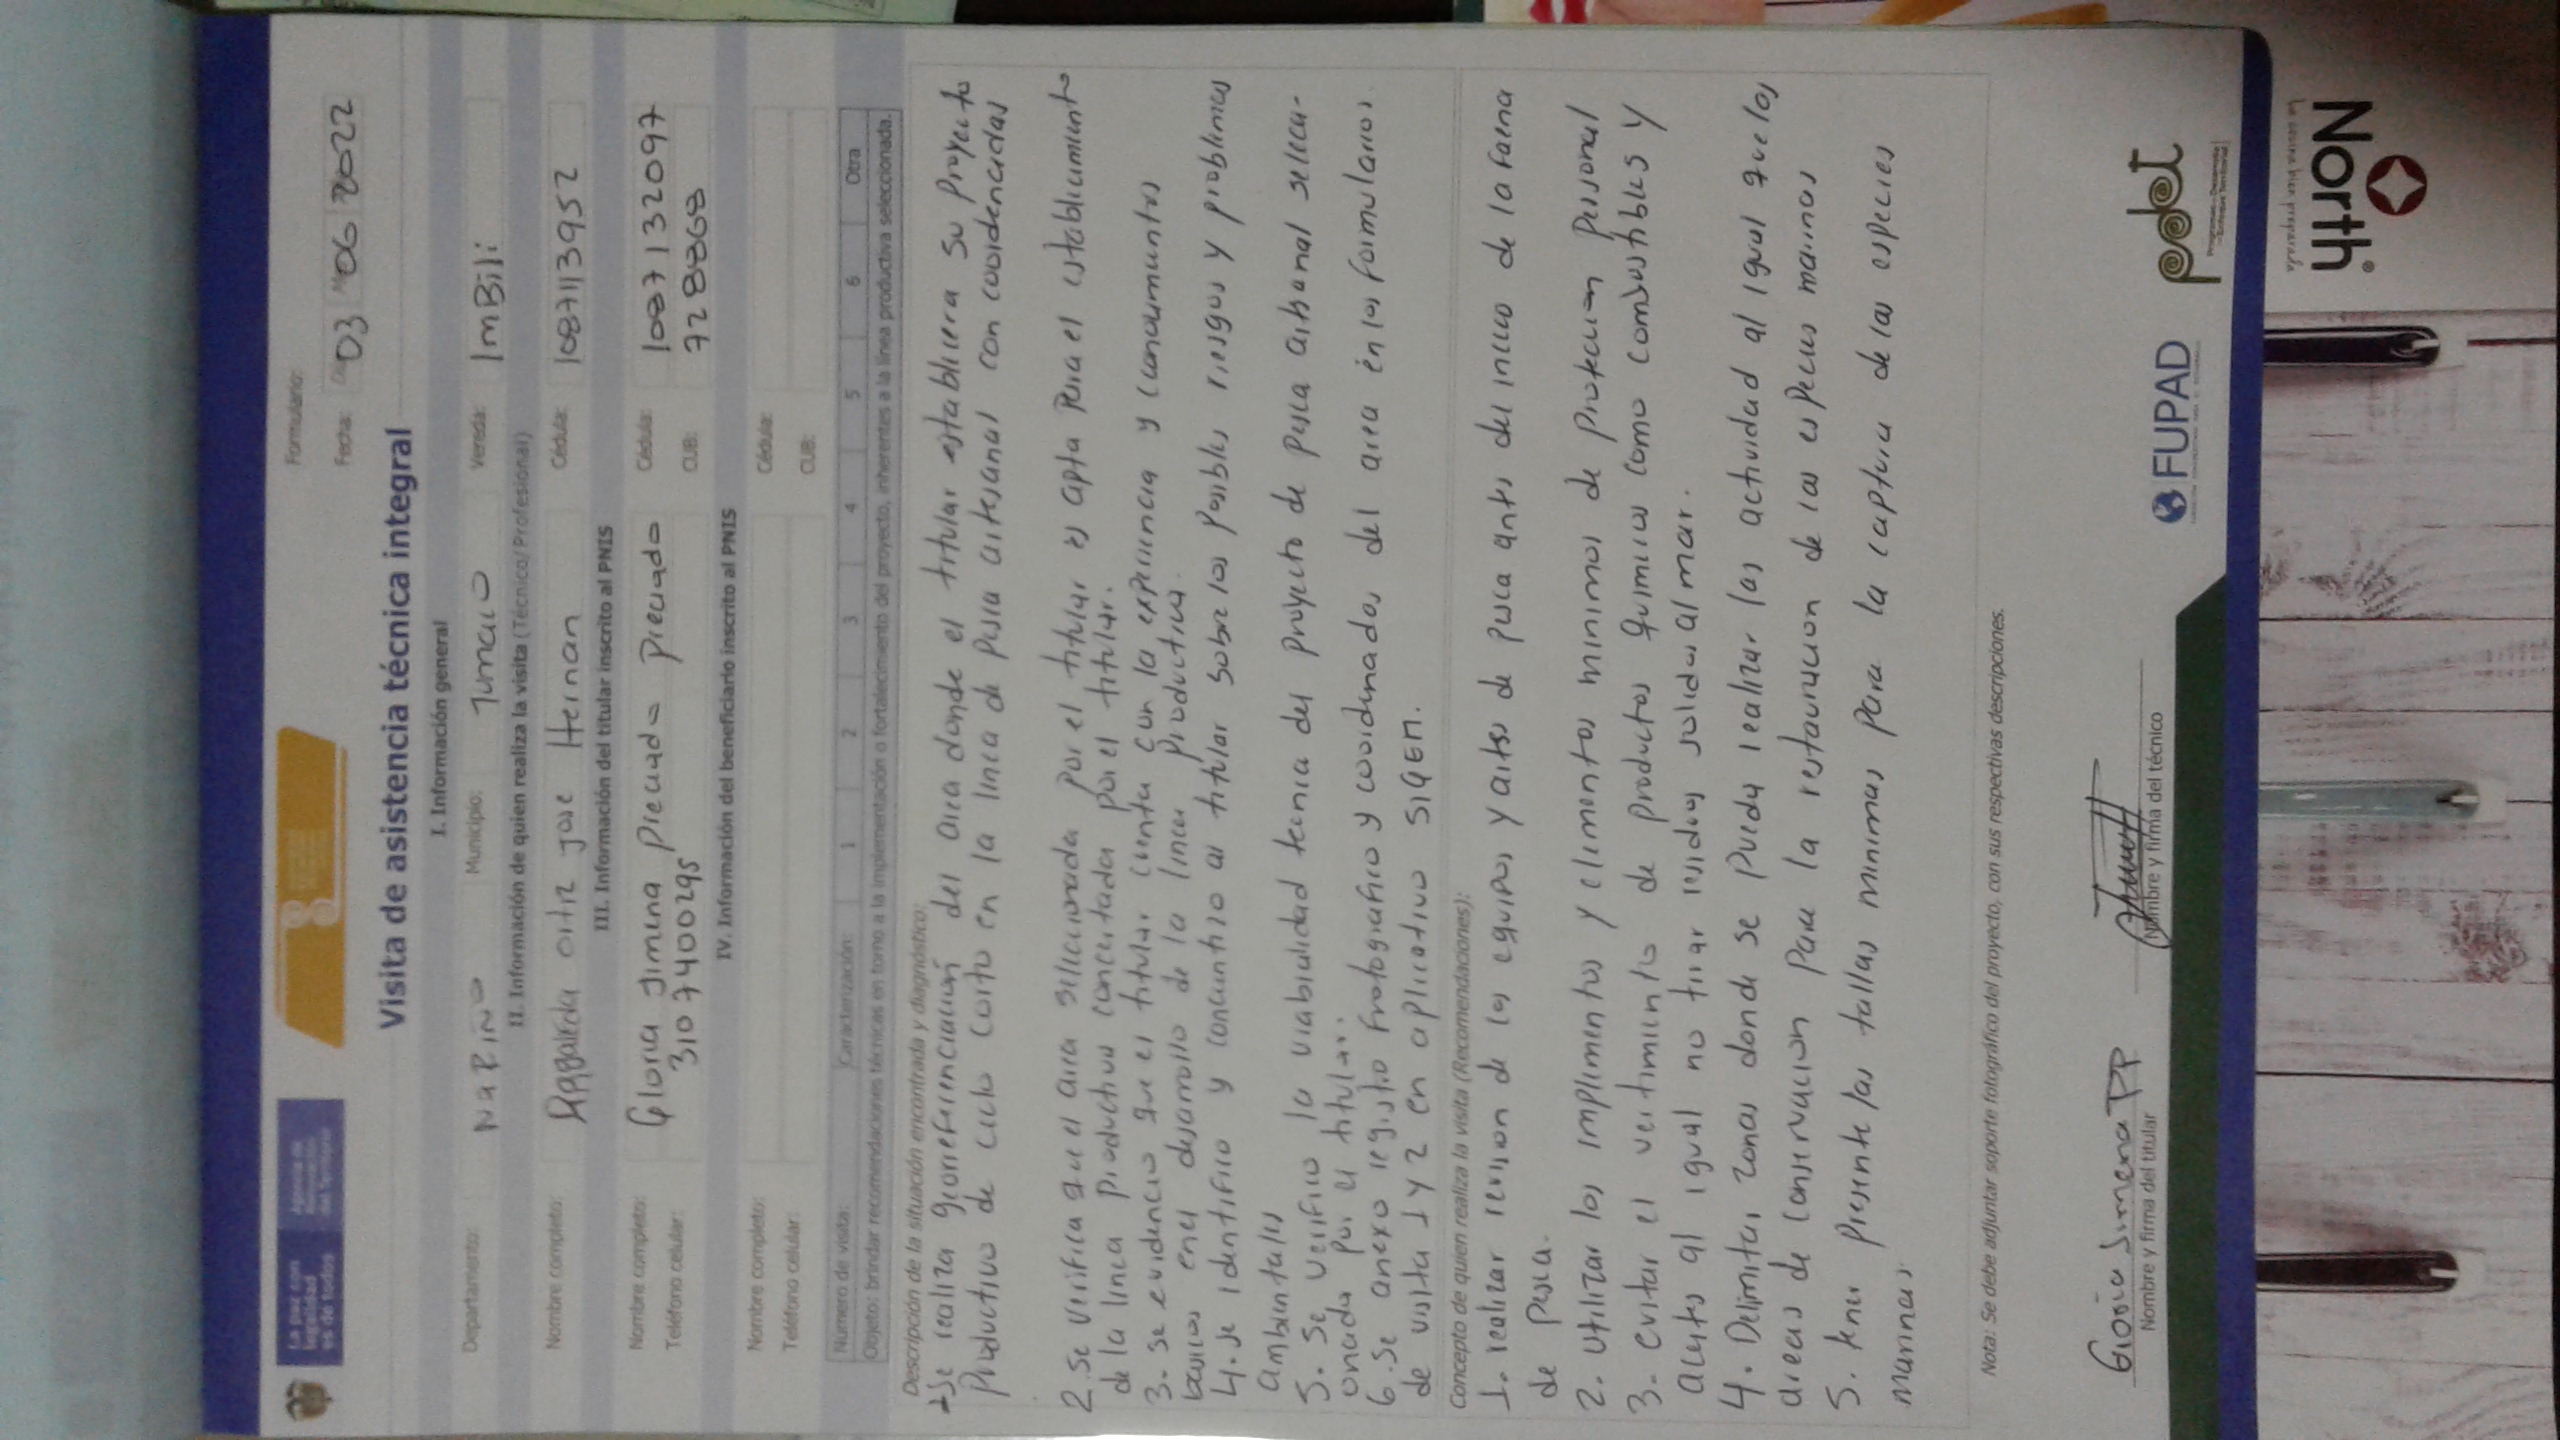 La paz con
legalidad
es de todos
Agencia de
Renovación
del Territorio
Formulario:
Fecha: Día 03 Mes 06 2022
Visita de asistencia técnica integral
I. Información general
Departamento: NaRiño Municipio: Tumaco Vereda: ImBili
II. Información de quien realiza la visita (Técnico/ Profesional)
Nombre completo: ortiz jose Hernan Cédula: 1087113952
III. Información del titular inscrito al PNIS
Nombre completo: Gloria Jimena Preciado Preciado Cédula: 1087132097
Teléfono celular: 3107400295 CUB: 728868
IV. Información del beneficiario inscrito al PNIS
Nombre completo: Cédula:
Teléfono celular: CUB:
Número de visita: Caracterización: 1 2 3 4 5 6 Otra
Objeto: brindar recomendaciones técnicas en torno a la implementación o fortalecimiento del proyecto, inherentes a la línea productiva seleccionada.
Descripción de la situación encontrada y diagnóstico:
1. Se realiza georeferenciación del area donde el titular establecera su proyecto
productivo de ciclo corto en la linea de pesca artesanal con coordenadas
2. Se verifica que el area seleccionada por el titular es apta para el establecimiento
de la linea productiva concertada por el titular.
3. se evidencio que el titular cuenta con la experiencia y conocimientos
basicos en el desarrollo de la linea productiva.
4. se identifico y concientizo al titular sobre los posibles riesgos y problemas
ambientales
5. Se verifico la viabilidad tecnica del proyecto de pesca artesanal selecci-
onada por el titular.
6. Se anexo registro fotografico y coordenadas del area en los formularios
de visita 1 y 2 en aplicativo SIGEM.
Concepto de quien realiza la visita (Recomendaciones):
1. realizar revision de los equipos y artes de pesca antes del inicio de la faena
de pesca.
2. utilizar los implementos y elementos minimos de proteccion personal
3. evitar el vertimiento de productos quimicos como combustibles y
aceites al igual no tirar residuos solidos al mar.
4. Delimitar zonas donde se pueda realizar las actividad al igual que los
areas de conservacion para la restauracion de las especies marinas
5. tener presente las tallas minimas para la captura de las especies
marinas
Nota: Se debe adjuntar soporte fotográfico del proyecto, con sus respectivas descripciones.
Gloria Jimena PP
Nombre y firma del titular
Nombre y firma del técnico
FUPAD
pdet
Programas de Desarrollo
con Enfoque Territorial
North
La cocina bien preparada